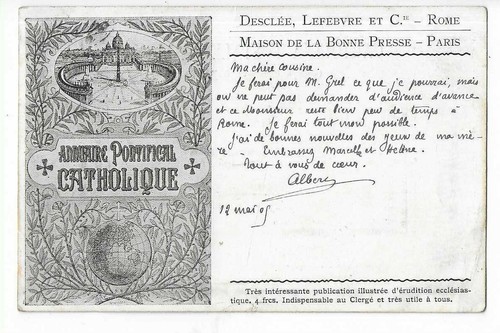 DESCLÉE, LEFEBVRE ET C.IE – ROME
MAISON DE LA BONNE PRESSE – PARIS
ANNUAIRE PONTIFICAL
CATHOLIQUE
Ma chère cousine.
Je ferai pour M. Grel ce que je pourrai, mais
on ne peut pas demander d'audience d'avance
et ce Monsieur reste bien peu de temps à
Rome. Je ferai tout mon possible.
J'ai de bonnes nouvelles des yeux de ma mè-
re – Embrassez Marcelle et
Tout à vous de cœur.
Albert
12 mai 05
Très intéressante publication illustrée d'érudition ecclésias-
tique, 4 frcs. Indispensable au Clergé et très utile à tous.